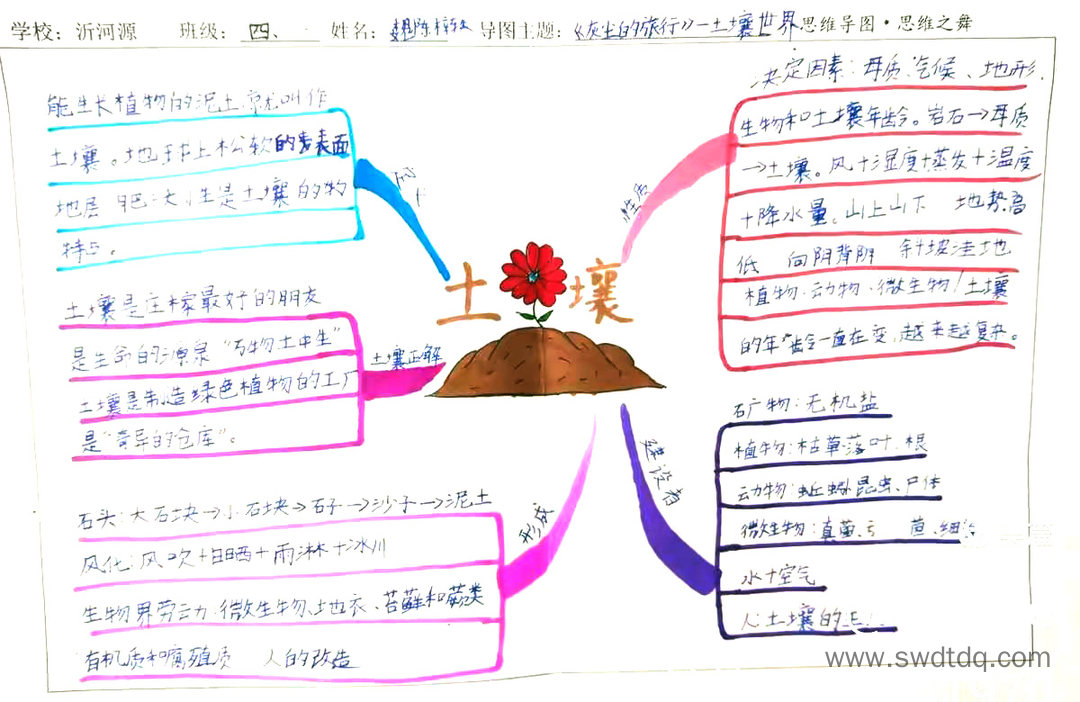 学校：沂河源 班级：四、 姓名： 导图主题：《灰尘的旅行》—土壤世界 思维导图·思维之舞
能生长植物的泥土就叫作
土壤。地球上松软的表面
地层 肥沃性是土壤的物
特点。
土壤是庄稼最好的朋友
是生命的源泉 "万物土中生"
土壤是制造绿色植物的工厂
是"奇异的仓库"。
土壤正解
石头：大石块→小石块→石子→沙子→泥土
风化：风吹+日晒+雨淋+冰川
生物界劳动：微生物、地衣、苔藓和蕨类
有机质和腐殖质 人的改造
形成
土壤
性质
决定因素：母质、气候、地形、
生物和土壤年龄。岩石→母质
→土壤。风+湿度+蒸发+温度
+降水量、山上山下 地势高
低 向阴背阴 斜坡洼地
植物、动物、微生物/土壤
的年龄一直在变，越来越复杂。
建设者
石产物：无机盐
植物：枯草、落叶、根
动物：蚯蚓、昆虫、尸体
微生物：真菌、 菌、细
水+空气
人：土壤的
www.swdtdq.com